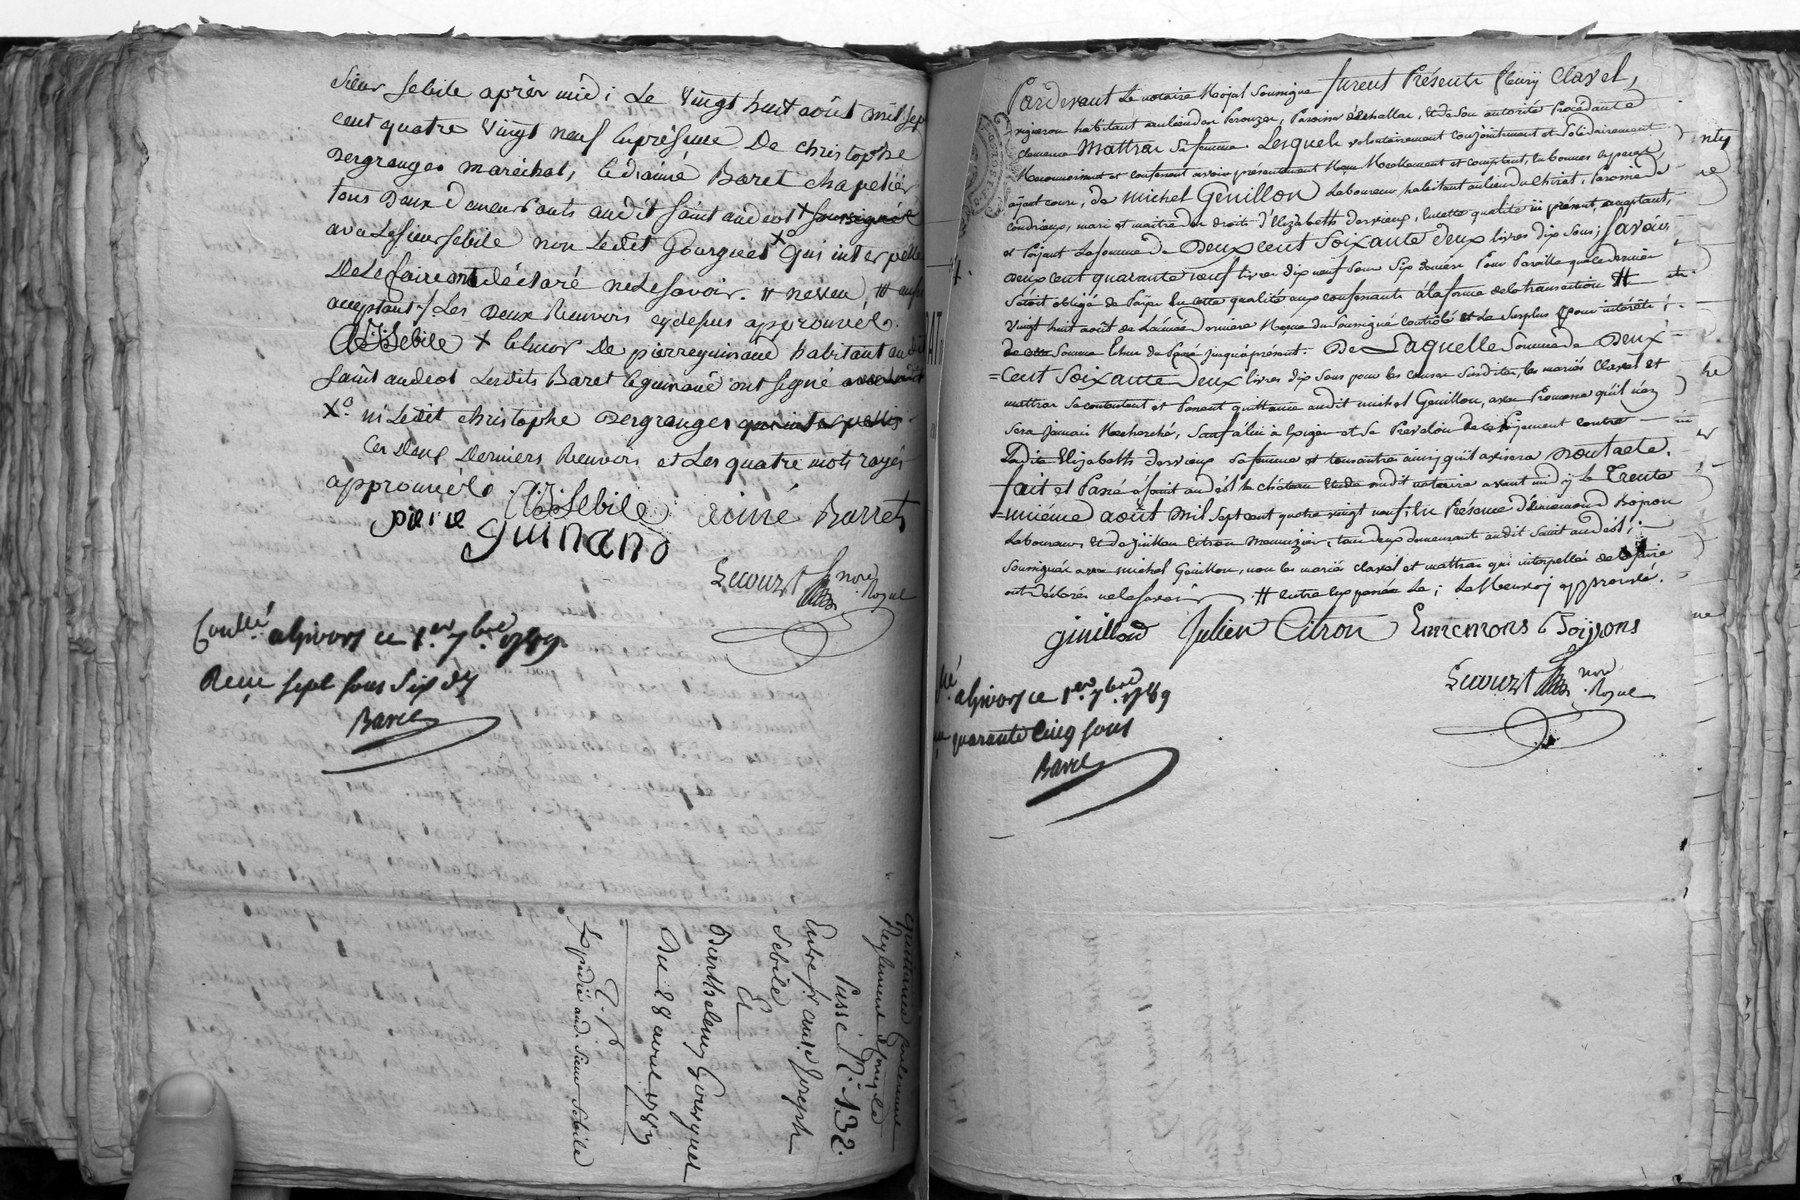 Sieur Sebile après midi Le Vingt huit août mil sept
cent quatre Vingt neuf En présence De Christophe
Dergranges maréchal, le d. aimé Baret chapelier
tous Deux Demeurants audit Saint andeol + soussignés
avec Le sieur Sebile non Ledit Gourguet X° qui interpellé
De Le faire ont déclaré ne Le savoir. # neveu, #
acceptant / Les Deux Renvois cy dessus approuvés.
AJSebile + De pierre guinand habitant audit
Saint andeol Lesdits Baret & guinand ont signé
X° ni Ledit christophe Dergranges qui interpellés
Ces Deux Derniers Renvois et Les quatre mots rayés
approuvés AJSebile aimé Barret
pierre guinand
Lecourt nore Royal
Conllé à Givors ce 1.er 7.bre 1789.
Reçu sept sous six d.
Barel
quittance
Reglement
Passé N.° 132.
Entre Sr. aimé Joseph
Sebile
Et
Barthelemy Gourguet
Du 28 avril 1783
Expédié aud. Sieur Sebile
Pardevant Le notaire Royal Soussigné furent Présents fleury Clavel,
vigneron habitant au lieu de Perouzes, Paroisse d'échallas, et de son autorité Procédante
clemence Mattras sa femme. Lesquels volontairement conjointement et Solidairement
Reconnoissent et confessent avoir présentement Reçu Réellement et comptant, En bonnes Especes
ayant cours, de michel Genillon Laboureur, habitant au lieu du Chirat, Paroisse de
Condrieux, mari et maitre des droits d'Elizabeth Dervieux, En cette qualité ici présent, acceptant,
et Payant La somme de Deux cent Soixante deux livres dix sous; Savoir
deux cent quarante neuf livres dix neuf sous six deniers Pour Pareille que ce dernier
s'étoit obligé de Païer En cette qualité aux confessants à la forme de la transaction #
Vingt huit août de L'année derniere Reçue du Soussigné Contrôlé et Le Surplus pour intérêts
de cette Somme Echus de Passé jusqu'à présent. De Laquelle Somme de Deux
=Cent Soixante Deux livres dix Sous pour les causes Susdites, les mariés Clavel et
mattras Se contentent et Passent quittance audit michel Genillon, avec Promesse qu'il n'en
Sera jamais Recherché, Sauf à lui à Exiger et Se Prévaloir de ce Payement contre
Ladite Elizabeth Dervieux sa femme et tous autres ainsi qu'il avisera Dont acte.
fait et Passé à Saint andeol le château Etude dudit notaire avant midy Le Trente
=unième août Mil Sept cent quatre vingt neuf; En Présence d'Ennemond Boiron
Laboureur, Et de Julien Citron Menuzier, tous deux demeurants audit Saint andeol;
Soussignés avec Michel Genillon, non les mariés clavel et mattras qui interpellés de le faire
ont déclarés ne le savoir # entre Eux passée Le; Le Renvoy approuvé.
ginillon Julien Citron Ennemons Boyrons
Lecourt nore Royal
à Givors ce 1.er 7.bre 1789
quarante cinq sous
Barel